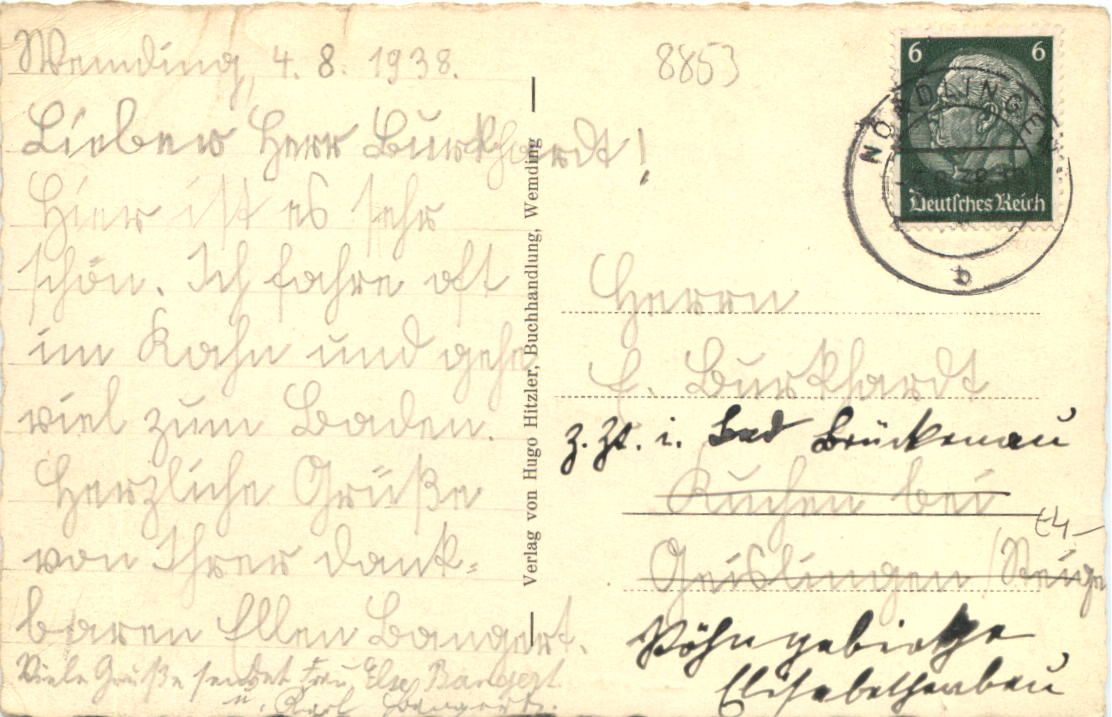 Wemding, 4. 8. 1938.
Lieber Herr Burkhardt!
Hier ist es sehr
schön. Ich fahre oft
im Kahn und gehe
viel zum Baden.
Herzliche Grüße
von Ihrer dank-
baren Ellen Bangert.
Viele Grüße sendet Frau Else Bangert
u. Karl Bangert.
Verlag von Hugo Hitzler, Buchhandlung, Wemding
8853
6 6
NÖRDLINGEN
b
Deutsches Reich
Herrn
E. Burkhardt
z. Zt. i. Bad Brückenau
Kuchen bei
Geislingen /Steige
Röhngebirge
Elisabethenbau